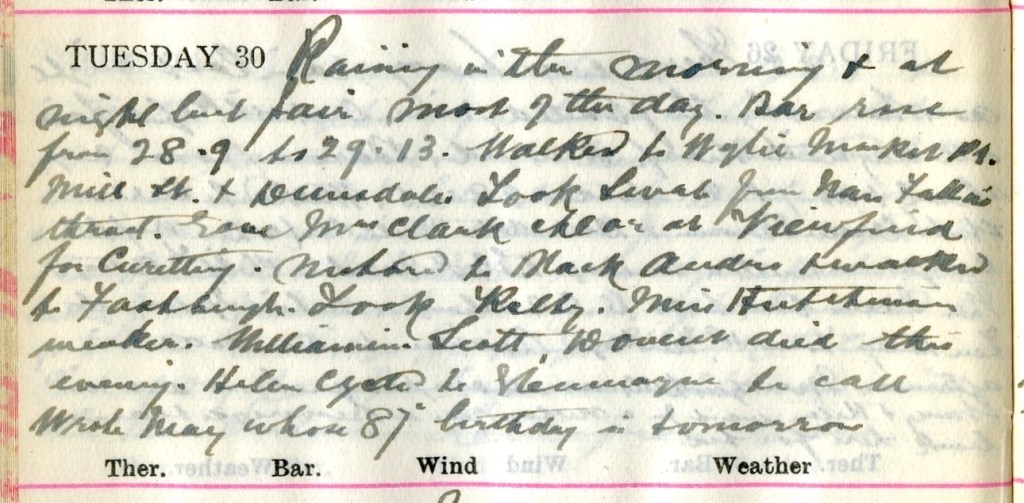 TUESDAY 30 Raining in the morning & at
night but fair most of the day. Bar rose
from 28.9 to 29.13. Walked to Wylie Market Pl.
Mill St. & Took Swab from Nan
throat. Gave Mrs Clark chlor at Viewfield
for Curetting. to Black & walked
to Took Kelby. Miss Hutchison
weaker. Williamin Scott, died this
evening. Helen cycled to Glenmayne to call
Wrote May whose 87 birthday is tomorrow
Ther. Bar. Wind Weather